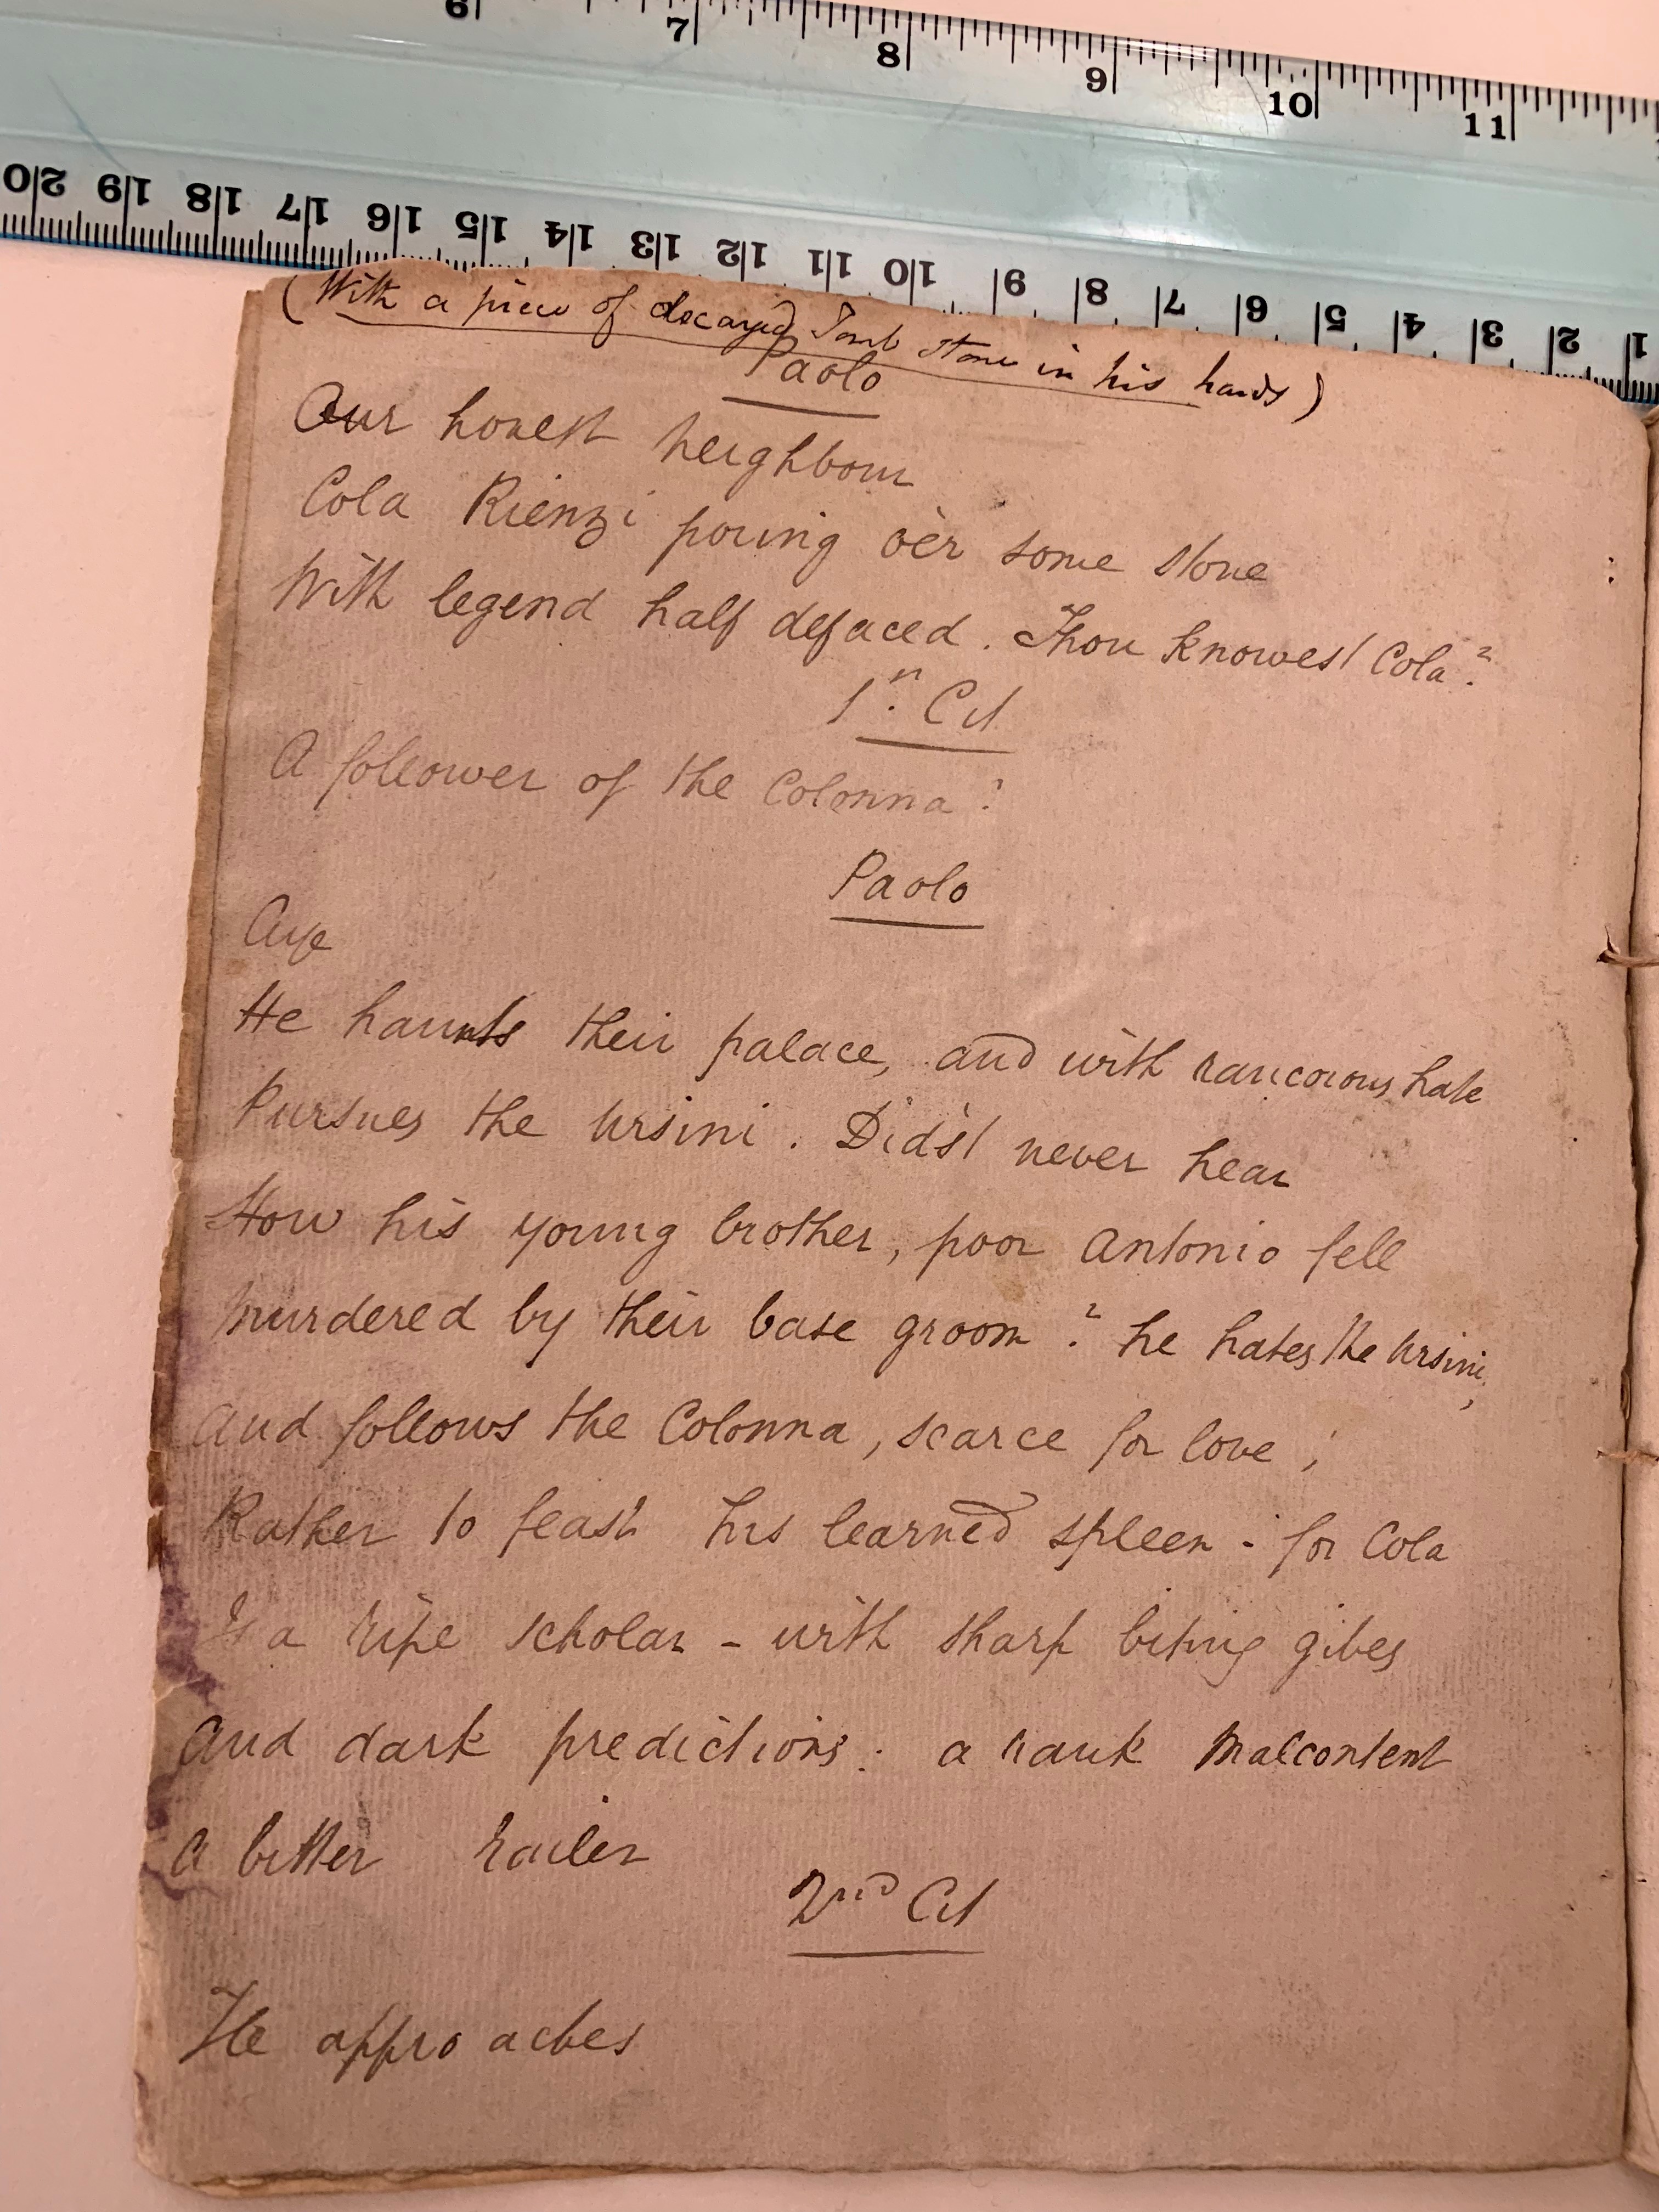 6 7 8 9 10 11
20 19 18 17 16 15 14 13 12 11 10 9 8 7 6 5 4 3 2 1
(With a piece of decayed Tomb stone in his hands)
Paolo
Our honest neighbour
Cola Rienzi poring o'er some stone
With legend half defaced. Thou knowest Cola?
1st. Cit
A follower of the Colonna?
Paolo
Aye
He haunts their palace, and with rancorous hate
Pursues the Ursini. Did'st never hear
How his young brother, poor Antonio fell
Murdered by their base groom? he hates the Ursini,
And follows the Colonna, scarce for love;
Rather to feast his learned spleen - for Cola
Is a ripe scholar - with sharp biting gibes
And dark predictions: a rank Malcontent
A bitter railer
2nd Cit
He approaches